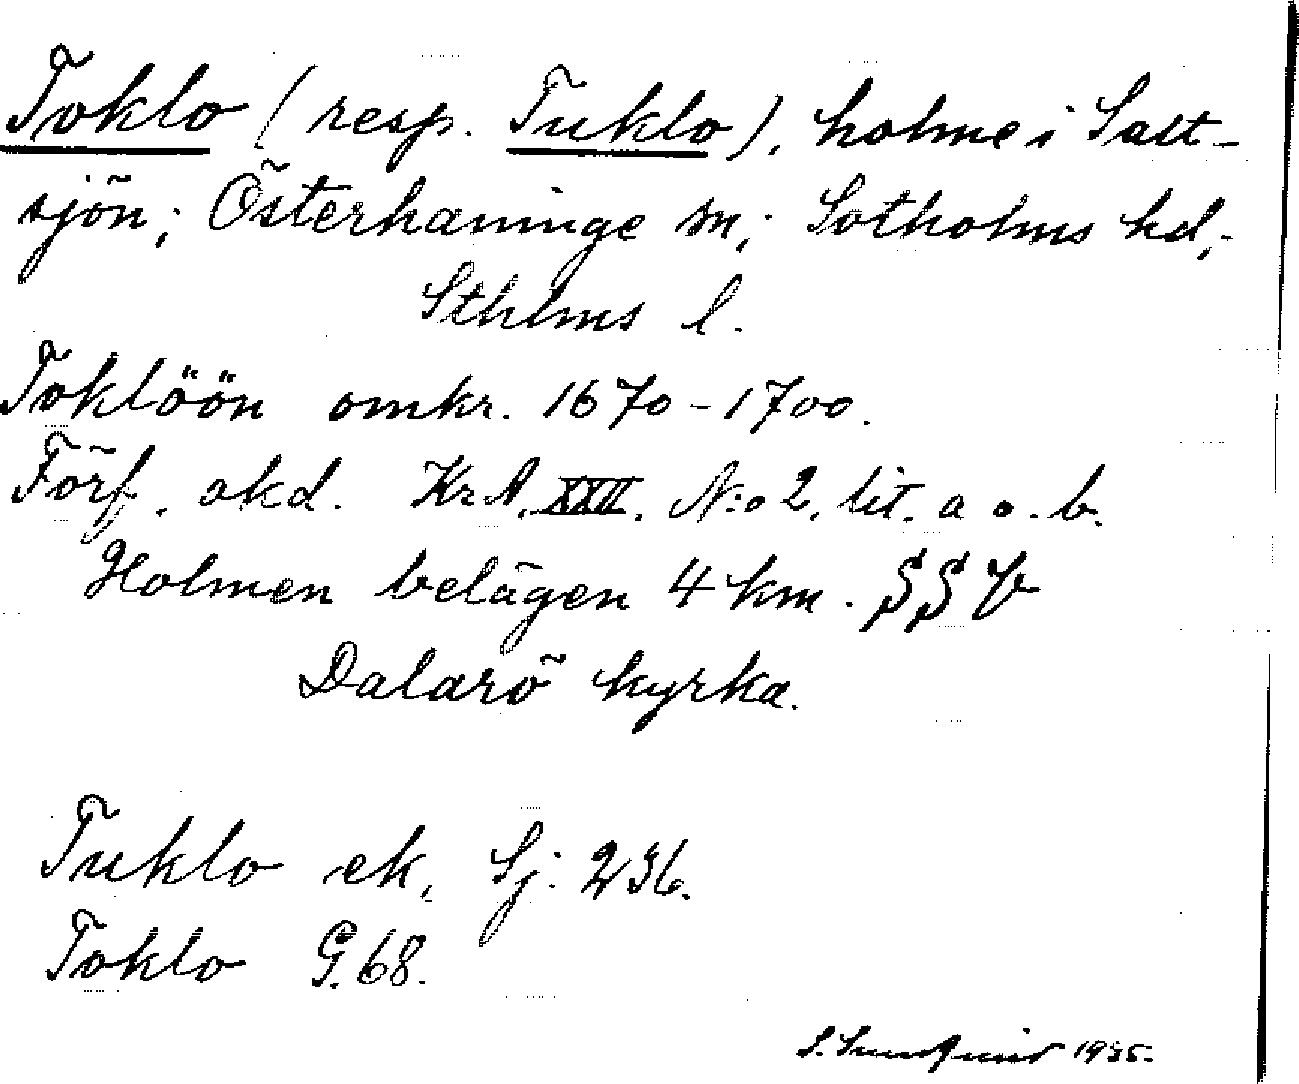 Toklo (resp. Tuklo), holme i Salt-
sjön; Österhaninge sn; Sotholms hd;
Sthlms l.
Toklöön omkr. 1670-1700.
Förf. okd. KrA. XXII. N:o 2, lit. a o. b.
Holmen belägen 4 km. SSV
Dalarö kyrka.
Tuklo ek. Sj: 236.
Toklo G. 68.
S. 1935.